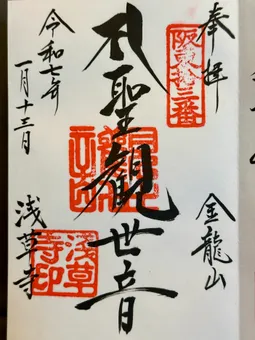 奉拝
阪東拾三番
金龍山
聖観世音
浅草寺
浅草
寺印
令和七年
一月十三日